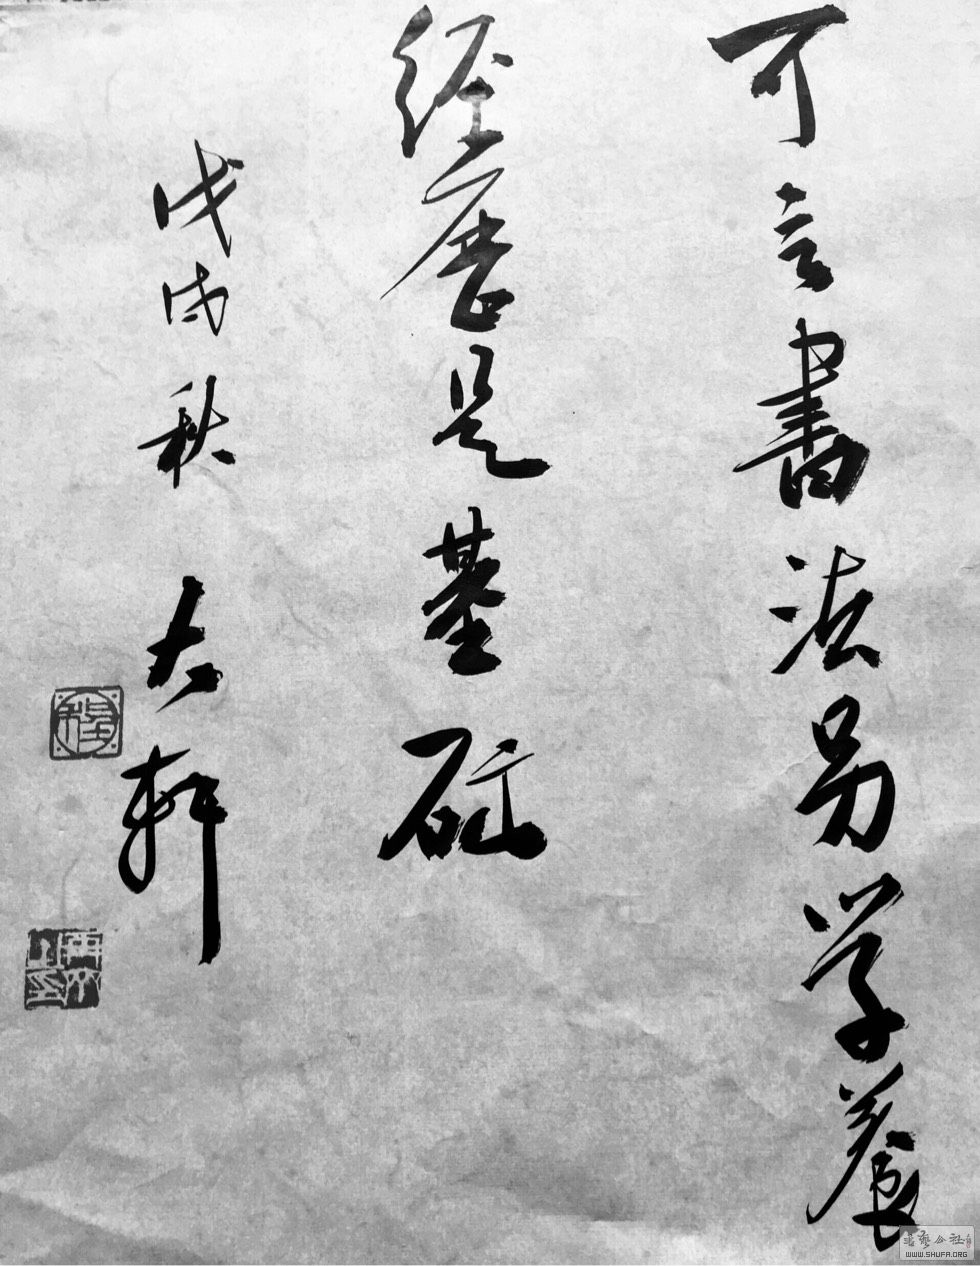 可言書法易学養
经歷是基础
戊戌秋 大轩
書藝公社
WWW.SHUFA.ORG